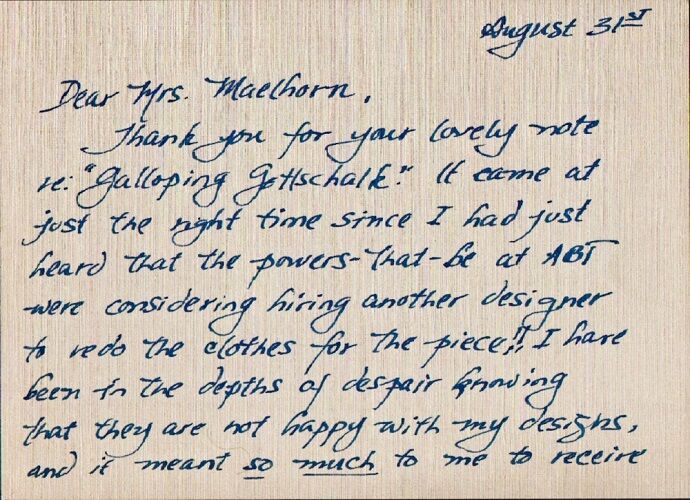 August 31st
Dear Mrs. Maelhorn,
Thank you for your lovely note
re: "Galloping Gottschalk." It came at
just the right time since I had just
heard that the powers-that-be at ABT
were considering hiring another designer
to redo the clothes for the piece!! I have
been in the depths of despair knowing
that they are not happy with my designs,
and it meant so much to me to receive